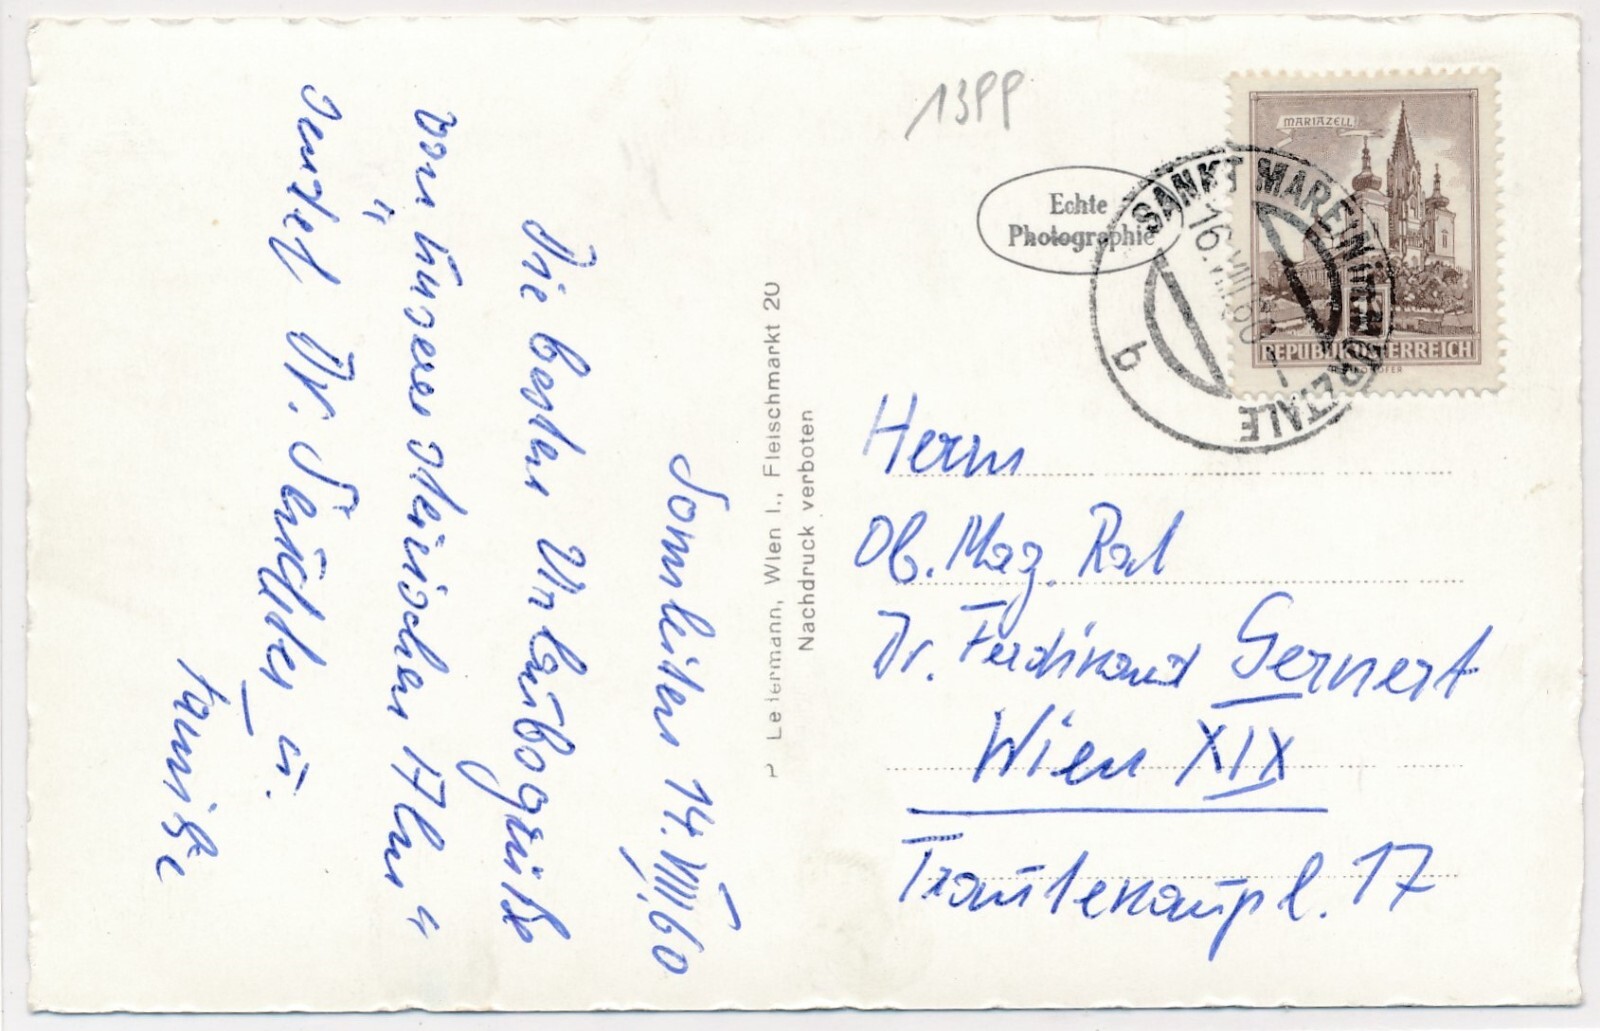 Sonnleiten 14.VIII.60
Die besten Urlaubsgrüße
von unserer steirischen "Alm"
sendet Dr. Seidler u.
Familie
P Ledermann, Wien I., Fleischmarkt 20
Nachdruck verboten
1399
Echte
Photographie
MARIAZELL
REPUBLIK ÖSTERREICH
SANKT MAREIN IM MÜRZTALE
16.VIII.60
b
Herrn
Ob. Mag. Rat
Dr. Ferdinand Gernert
Wien XIX
Trautenaupl. 17